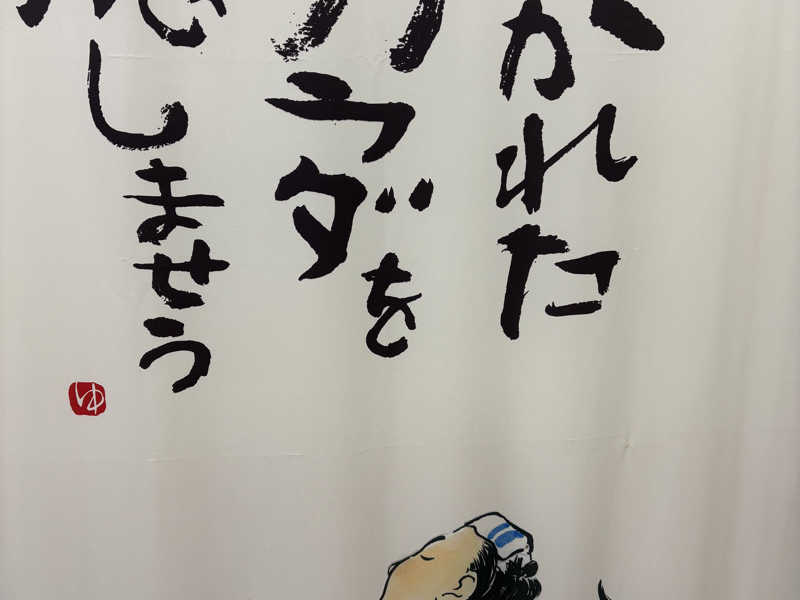 かれた
カラダを
癒しませう
ゆ